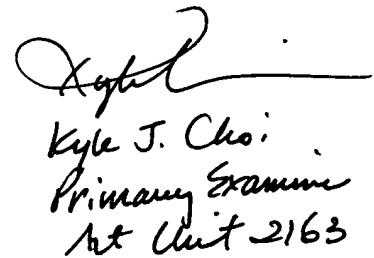 Kyle J. Choi
Primary Examiner
Art Unit 2163